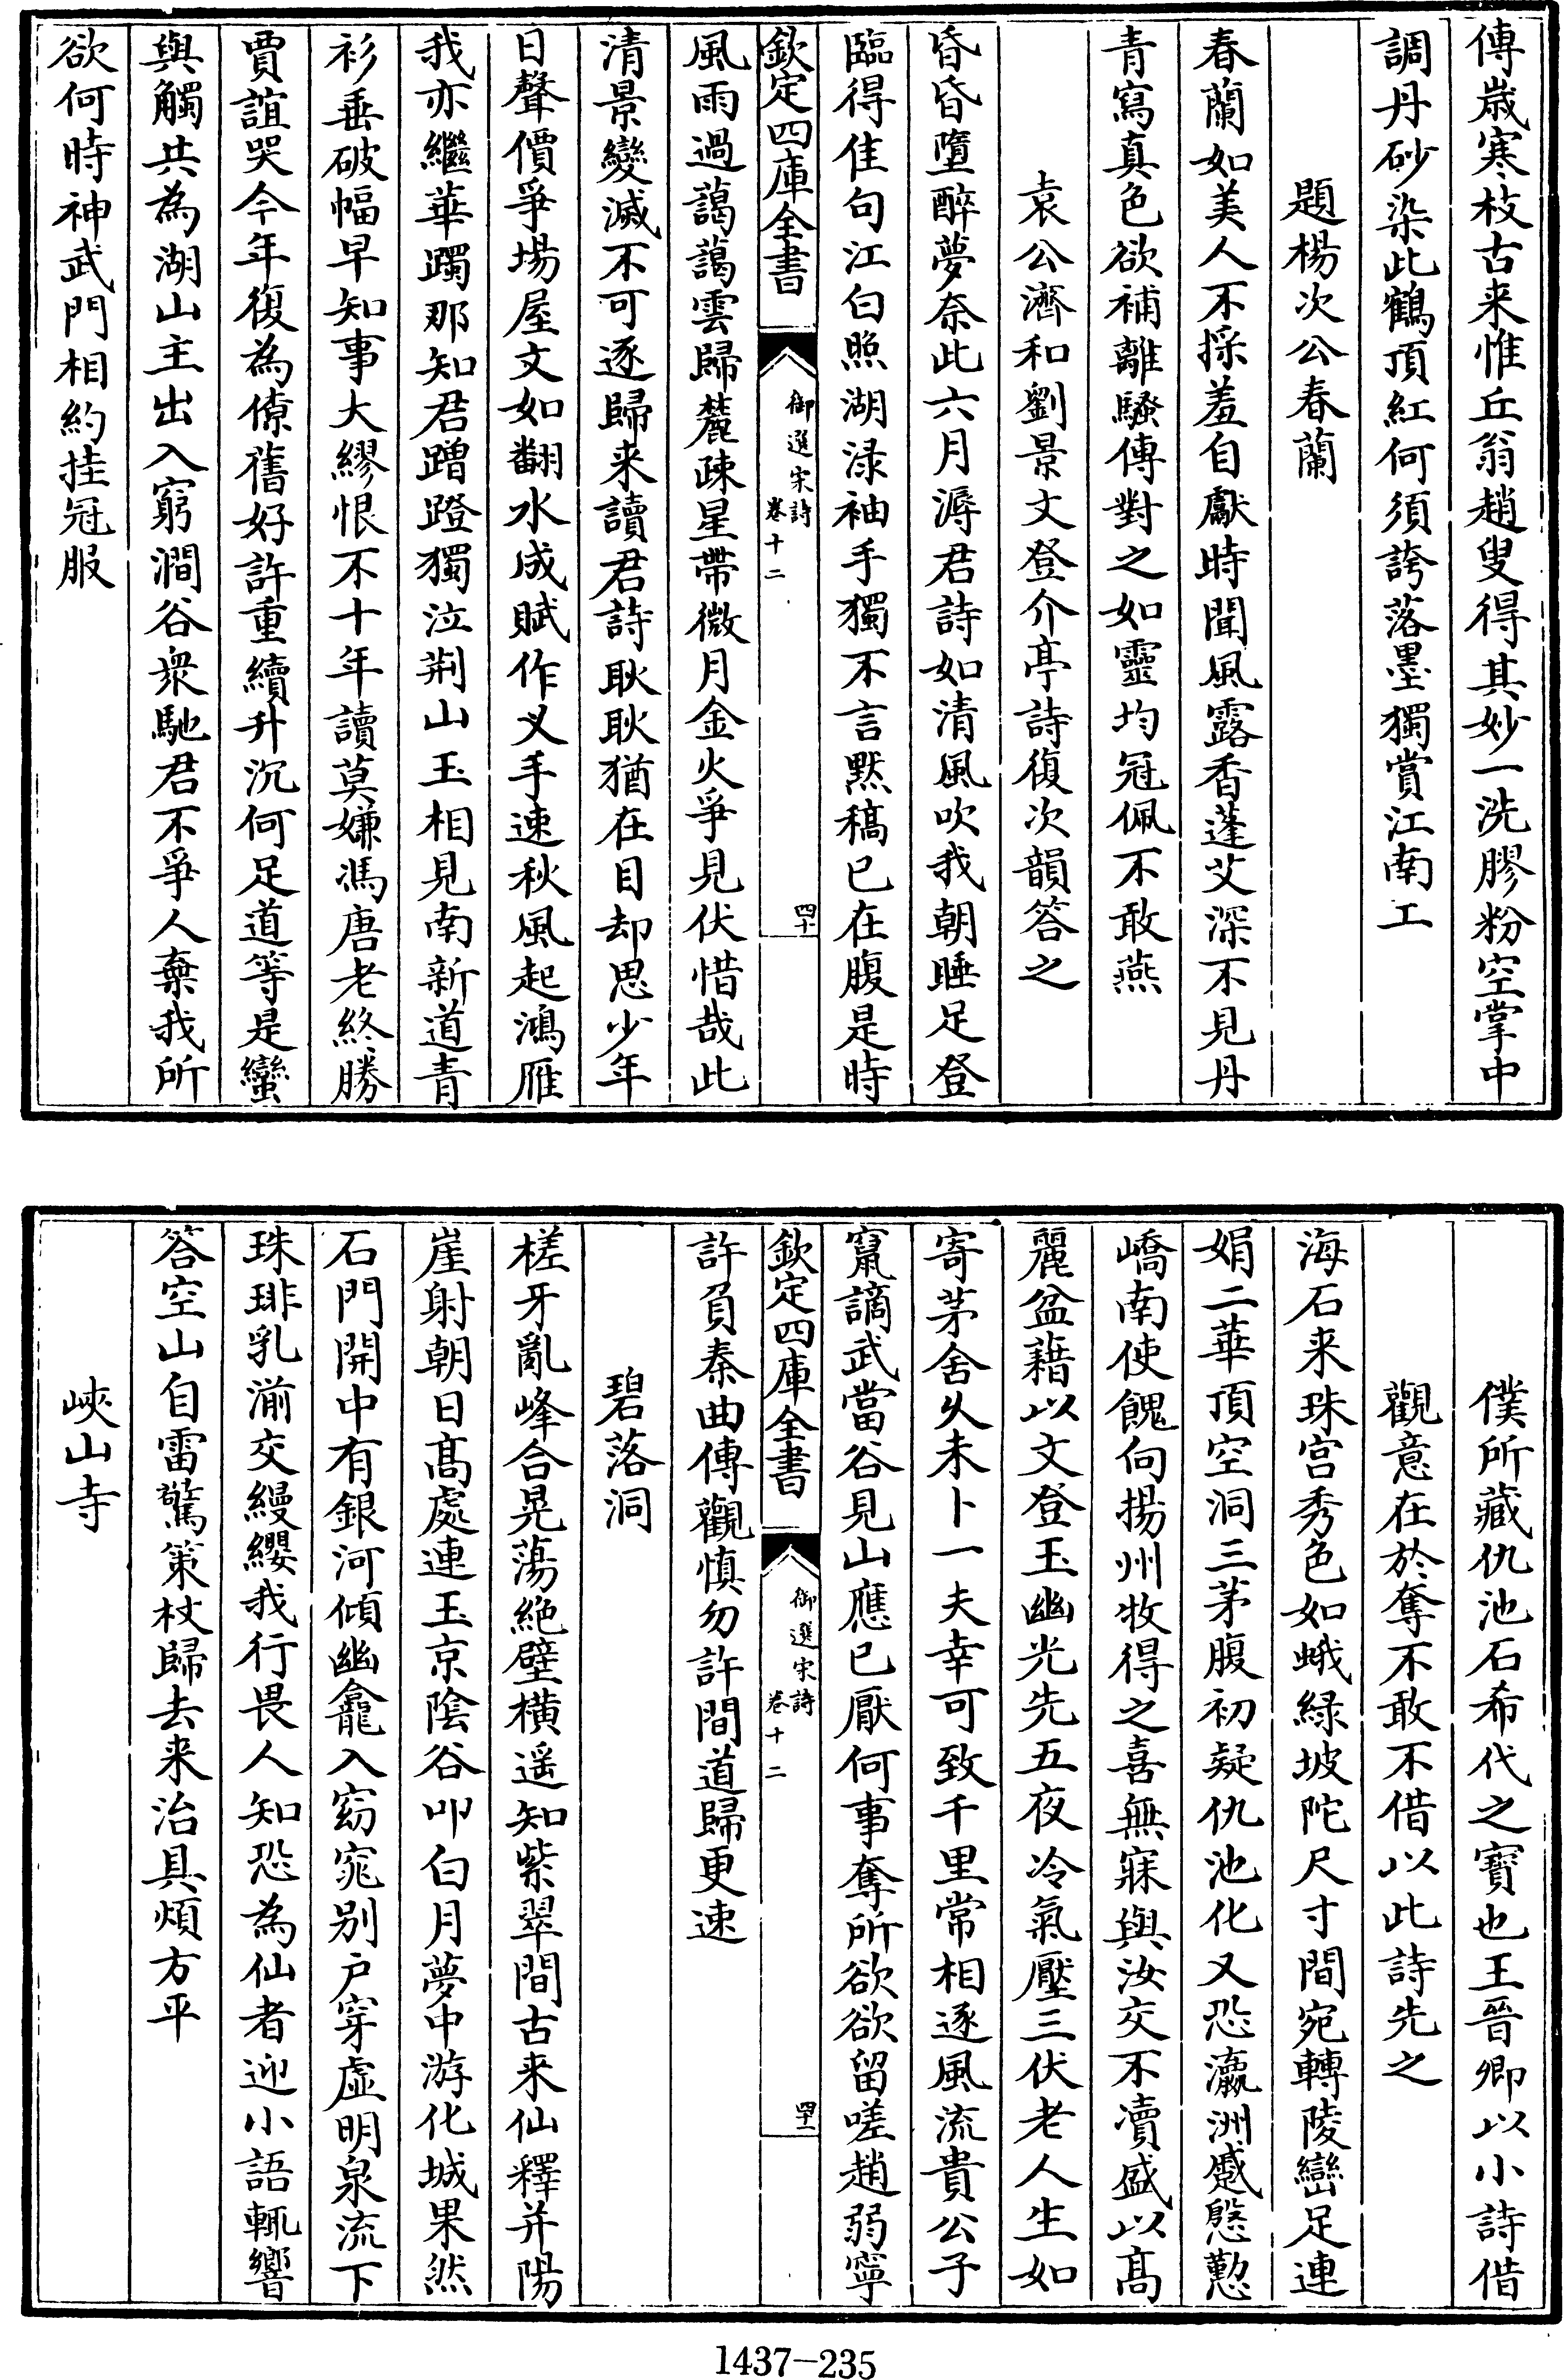 傳歲寒枝古来惟丘翁趙叟得其妙一洗膠粉空掌中
調丹砂染此鶴頂紅何須誇落墨獨賞江南工
題楊次公春蘭
春蘭如美人不採羞自獻時聞風露香蓬艾深不見丹
青寫真色欲補離騷傳對之如靈均冠佩不敢燕
袁公濟和劉景文登介亭詩復次韻答之
昏昏墮醉夢奈此六月溽君詩如清風吹我朝睡足登
臨得佳句江白照湖淥袖手獨不言黙稿已在腹是時
欽定四庫全書
御選宋詩
卷十二
四十
風雨過藹藹雲歸麓疎星帶微月金火爭見伏惜哉此
清景變滅不可逐歸来讀君詩耿耿猶在目却思少年
日聲價爭場屋文如翻水成賦作义手速秋風起鴻雁
我亦繼華躅那知君蹭蹬獨泣荆山玉相見南新道青
衫垂破幅早知事大繆恨不十年讀莫嫌馮唐老終勝
賈誼哭今年復為僚舊好許重續升沉何足道等是蠻
與觸共為湖山主出入窮澗谷衆馳君不爭人棄我所
欲何時神武門相約挂冠服
僕所藏仇池石希代之寶也王晉卿以小詩借
觀意在於奪不敢不借以此詩先之
海石来珠宫秀色如蛾緑坡陀尺寸間宛轉陵巒足連
娟二華頂空洞三茅腹初疑仇池化又恐瀛洲蹙慇懃
嶠南使餽向揚州牧得之喜無寐與汝交不瀆盛以髙
麗盆藉以文登玉幽光先五夜冷氣壓三伏老人生如
寄茅舍久未卜一夫幸可致千里常相逐風流貴公子
竄謫武當谷見山應已厭何事奪所欲欲留嗟趙弱寧
欽定四庫全書
御選宋詩
卷十二
四十一
許負秦曲傳觀慎勿許間道歸更速
碧落洞
槎牙亂峰合晃蕩絶壁横遥知紫翠間古来仙釋并陽
崖射朝日髙處連玉京陰谷叩白月夢中游化城果然
石門開中有銀河傾幽龕入窈窕别户穿虚明泉流下
珠琲乳湔交縵纓我行畏人知恐為仙者迎小語輒響
答空山自雷驚策杖歸去来治具煩方平
峽山寺
1437—235